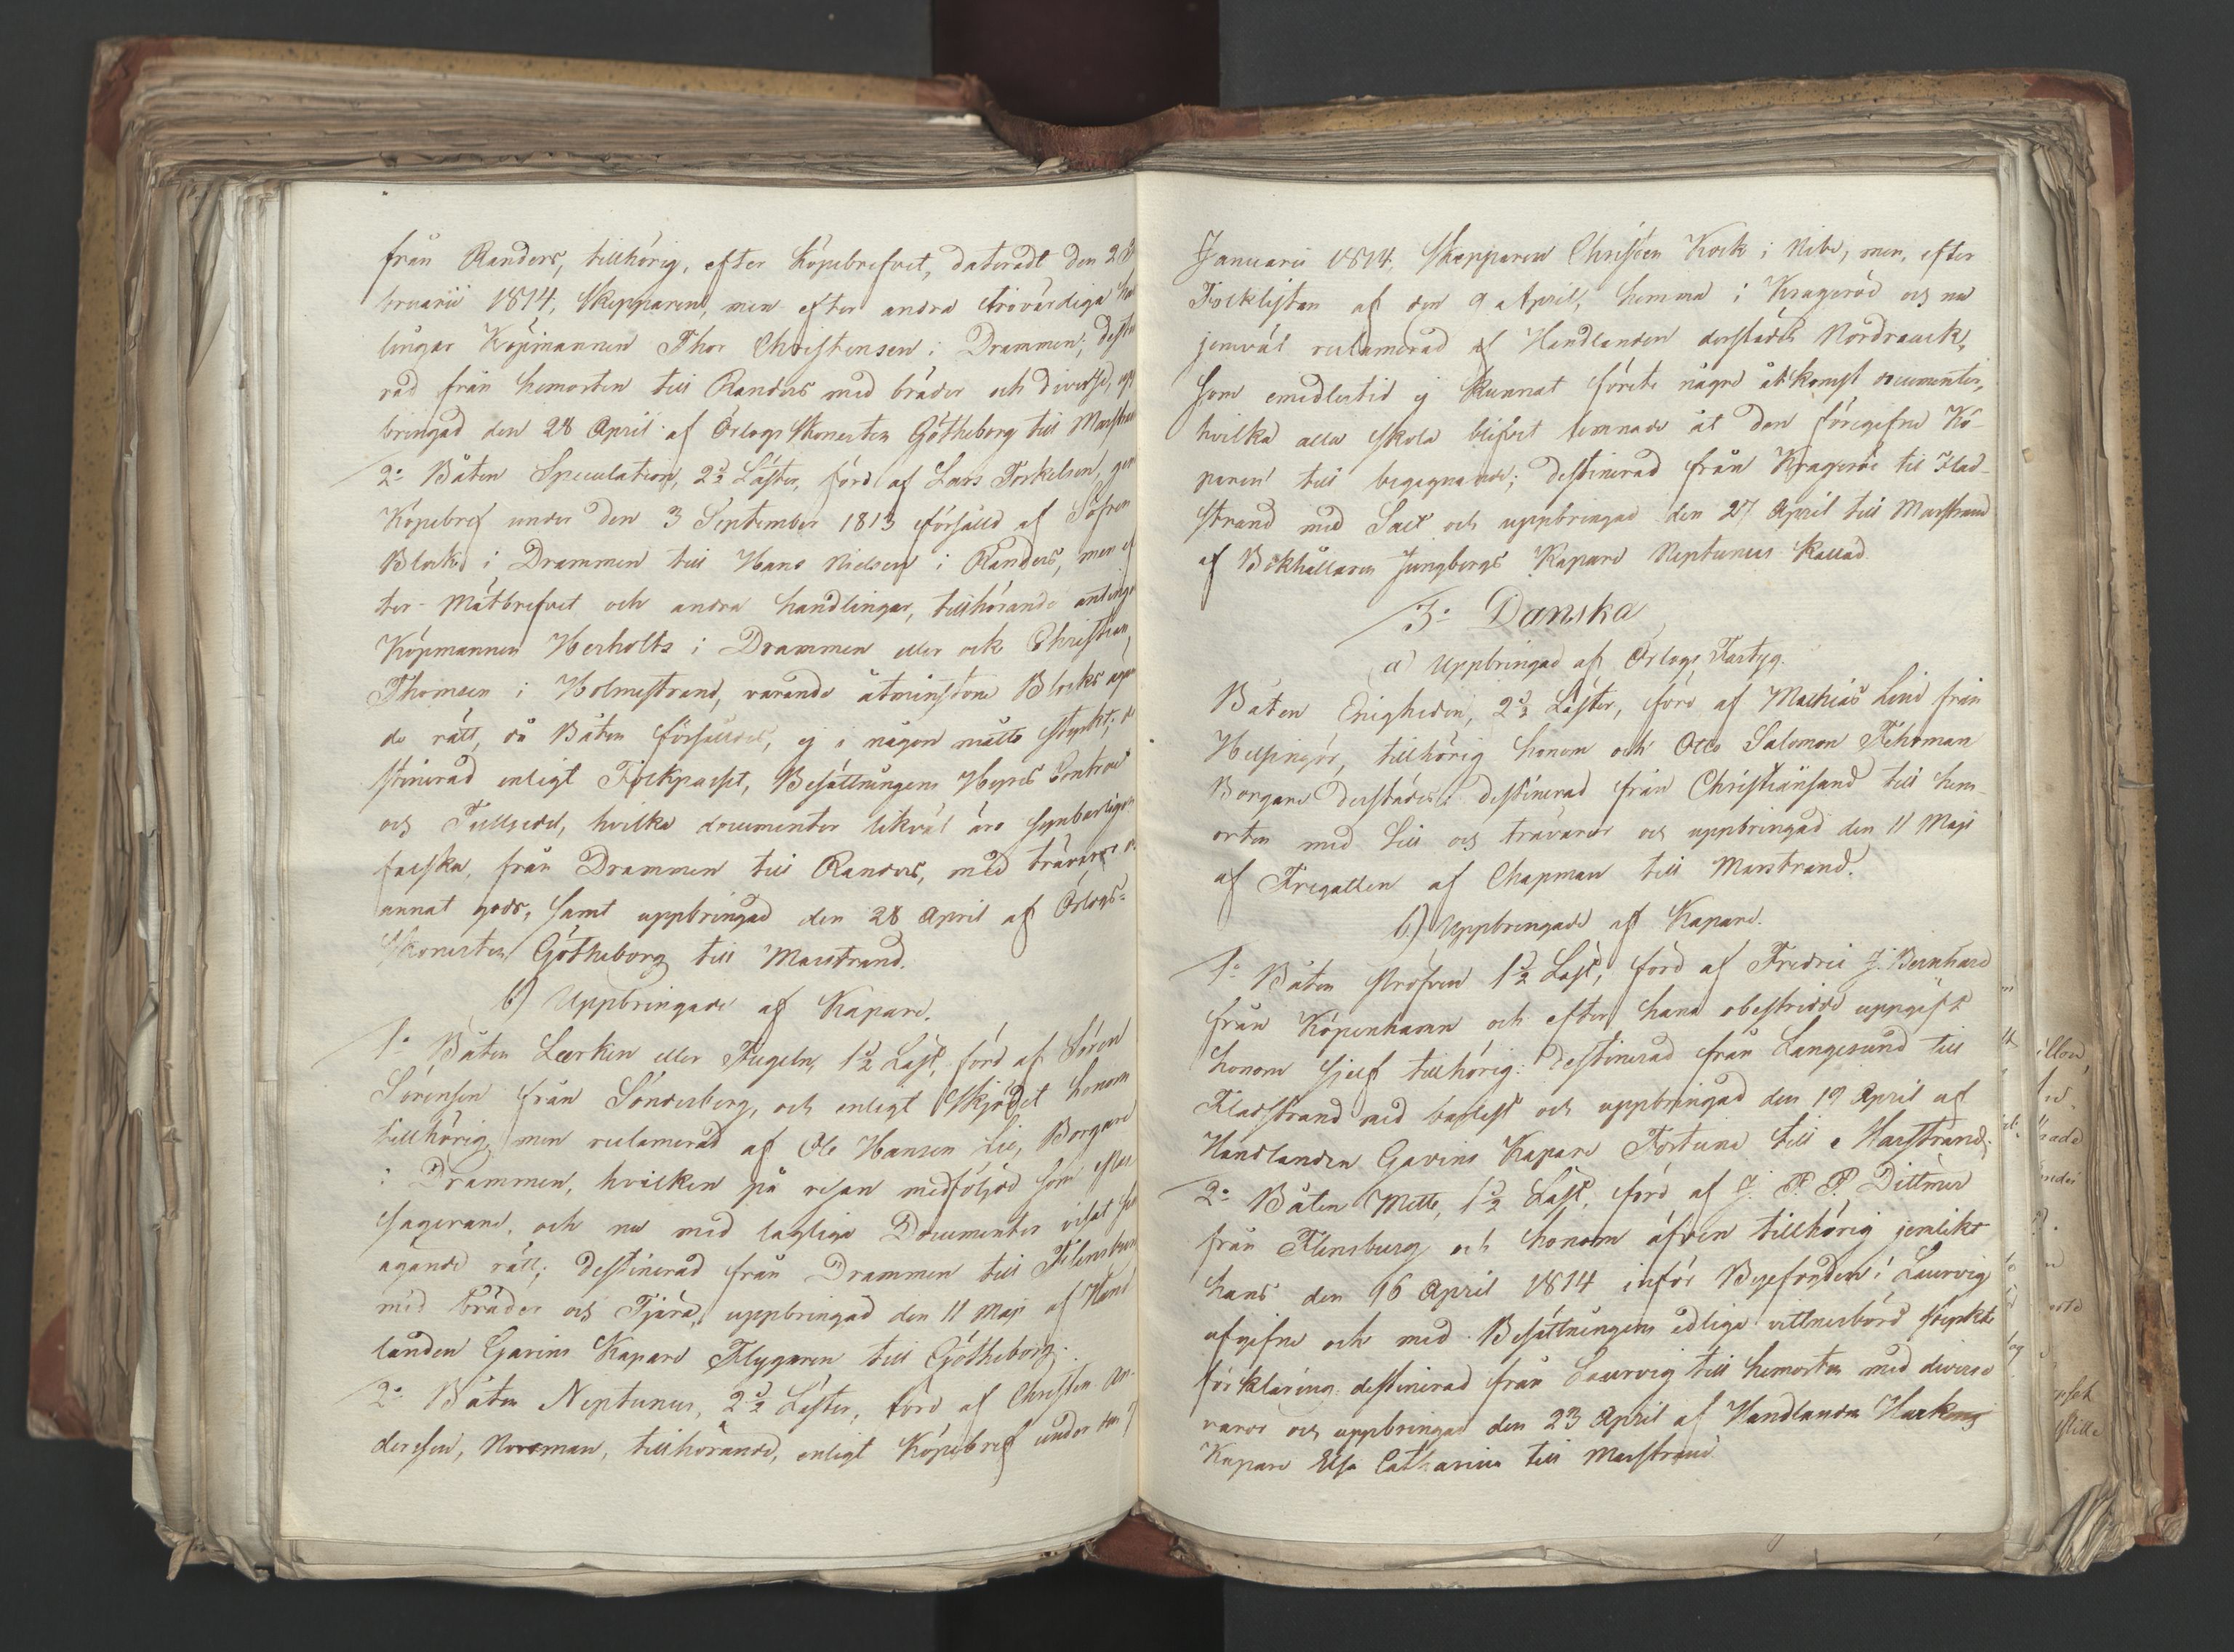 från Randers, tillhörig, efter Köpebrefvet, dateradt den 2 Fe
bruarii 1814, Skepparen, men efter andra trovärdiga han
lingar Köpmannen Thor Christensen i Drammen; desti
rad från hemorten till Randers med bräder och diverse, upp
bringad den 28 April af Örlogs Skonerten Götheborg till Marstrand
2o Båten Speculation, 2½ Läster, förd af Lars Torkelsen, gen
Köpebref under den 3 September 1813 försåld af Söfren
Blocks i Drammen till Hans Nielsen i Randers, men ef
ter Mätbrefvet och andra handlingar, tillhörande antinge
Köpmannen Herholts i Drammen eller ock Christian
Thomsen i Holmestrand, varande åtminstone Blocks ägan
de rätt, då Båten försåldes, ej i någon måtto styrkt; de
stinerad enligt Folkpasset, Besättningens Hyres Contract
och Tullsedel, hvilka documenter likväl äro synbarligen
falska, från Drammen till Randers, med trävaror o
annat gods, samt uppbringad den 28 April af Örlogs-
Skonerten Götheborg till Marstrand.
b) Uppbringade af Kapare.
1o Båten Lærken eller Fugeln, 1½ Läst, förd af Sören
Sörensen från Sönderberg, och enligt Skjödet honom
tillhörig, men reclamerad af Ole Hansen Lie, Borgare
i Drammen, hvilken på resan medföljde som pas
sagerare, och nu med lagliga Documenter visat sin
ägande rätt; destinerad från Drammen till Flensburg
med bräder och Tjära, uppbringad den 11 Maji af Hand
landen Gavins Kapare Flygaren till Götheborg.
2o Båten Neptunus, 2½ Läster, förd af Christen An-
dersen, Norrman, tillhörande, enligt Köpebref under den
Januarii 1814, Skepparen Christen Kock i Nibe, men, efter
Folklistan af den 9 April, hemma i Krageröe och nu
jemväl reclamerad af Handlanden derstädes Nordraack,
som emedlertid ej kunnat förete några åtkomst documenter,
hvilka alla skola blifvit lemnade åt den föregifne Kö-
paren till begagnande; destinerad från Krageröe til Flad-
strand med Salt och uppbringad den 27 April till Marstrand
af Bokhållaren Jungbergs Kapare Neptunus kallad.
3o Danska
a) Uppbringad af Örlogs Fartyg.
Båten Enigheden, 2½ Läster, förd af Mathias Lind från
Helsingör, tillhörig honom och Otto Salomon
Borgare derstädes; destinerad från Christiansand till hem-
orten med Sill och trävaror och uppbringad den 11 Maji
af Fregatten af Chapman till Marstrand.
b) Uppbringade af Kapare.
1o Båten Pröfven 1½ Läst, förd af Fredric J. Bernhard
från Köpenhamn och efter hans obestridde uppgift
honom sjelf tillhörig: destinerad från Langesund till
Fladstrand med barlast och uppbringad den 19 April af
Handlanden Gavins Kapare Fortuna till Marstrand.
2o Båten Mette, 1½ Läst, förd af J. P. P. Dittmer
från Flensburg och honom äfven tillhörig jemlikt
hans den 16 April 1814 inför Byefogden i Laurvig
afgifne och med Besättningens edliga vittnesbörd styrkte
förklaring: destinerad från Laurvig till hemorten med diverse
varor och uppbringad den 23 April af Handlanden
Kapare Elsa Catharina till Marstrand.